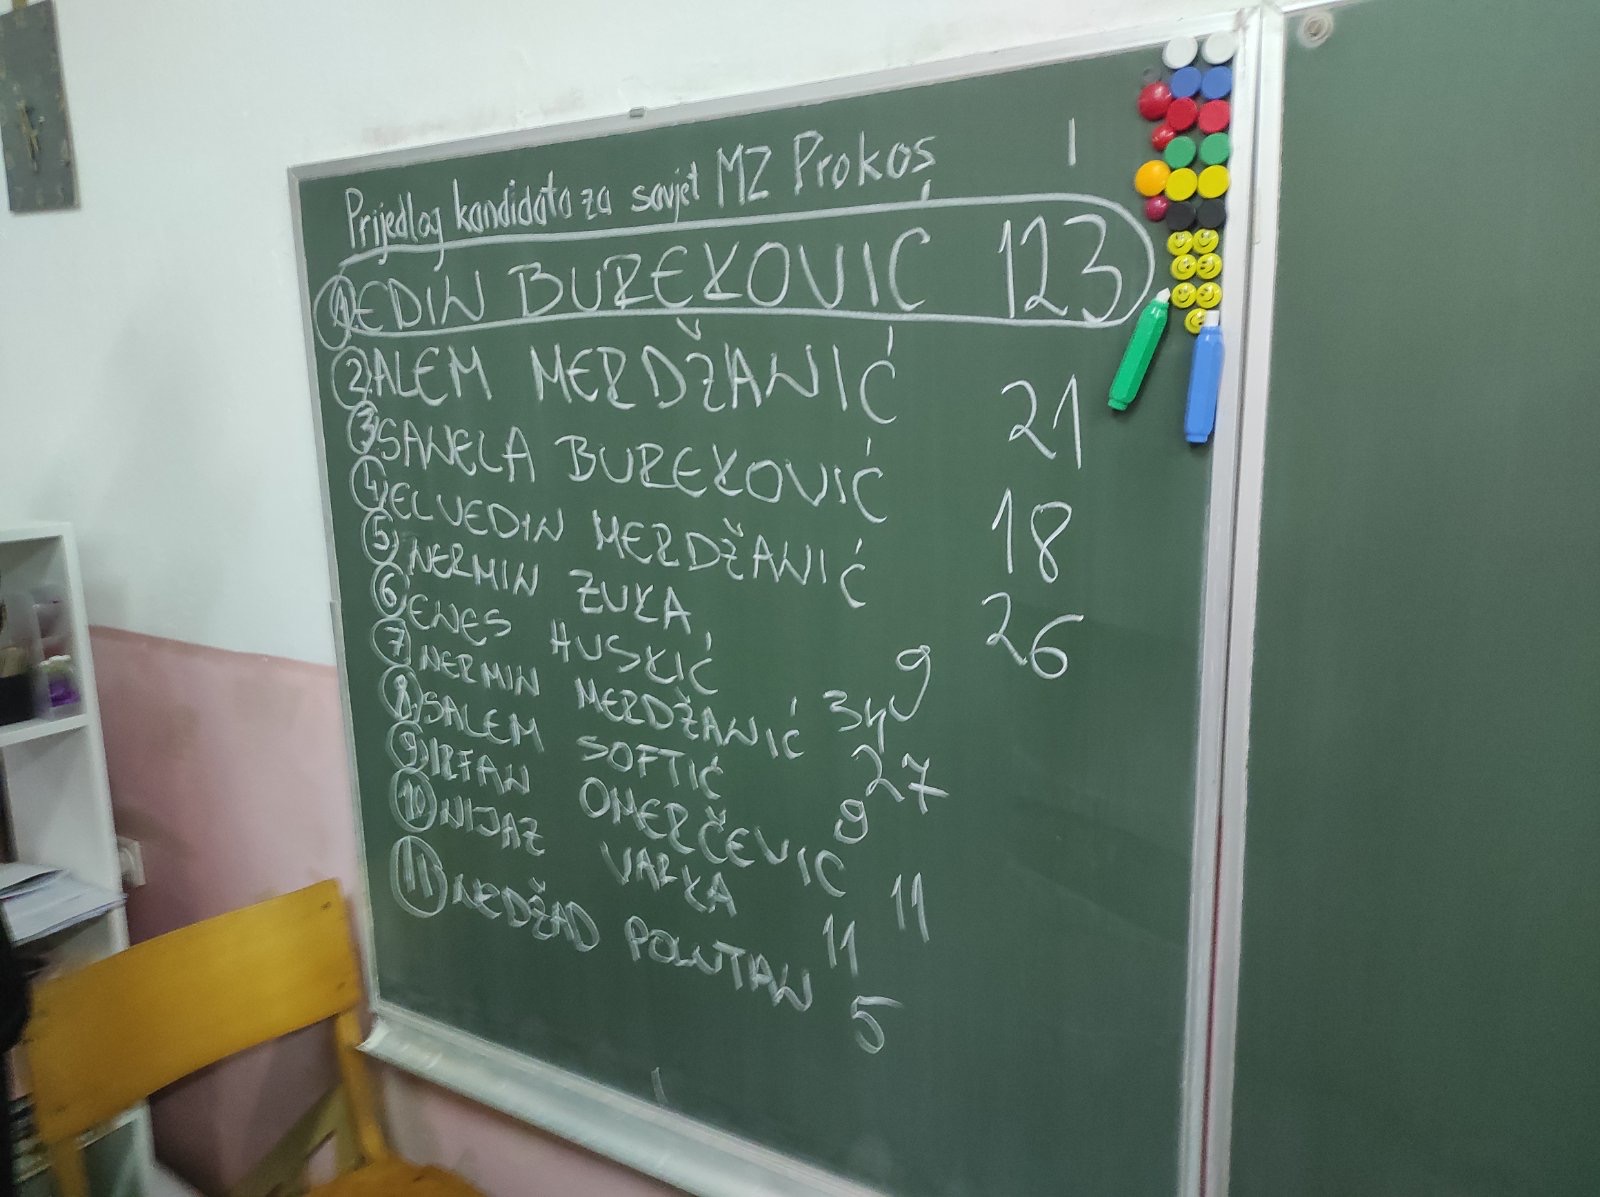 Prijedlog kandidata za savjet MZ Prokoš
1 EDIN BUREKOVIĆ 123
2 ALEM MERDŽANIĆ 21
3 SANELA BUREKOVIĆ 18
4 ELVEDIN MERDŽANIĆ 26
5 NERMIN ZUKA 9
6 ENES HUSKIĆ 34
7 NERMIN MERDŽANIĆ 27
8 SALEM SOFTIĆ 9
9 IRFAN OMERČEVIĆ 11
10 NIJAZ VARKA 11
11 NEDŽAD POLUTAN 5